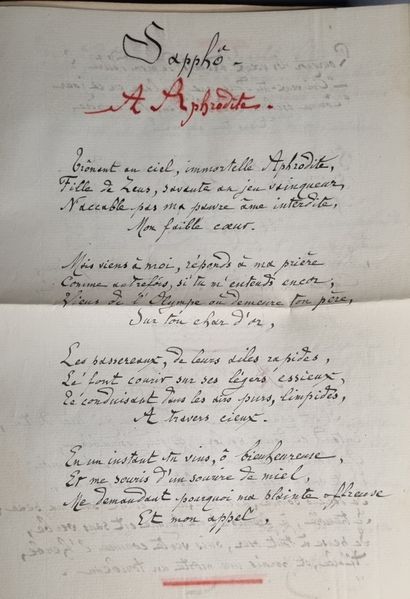 Sapphô -
A Aphrodite.
Trônant au ciel, immortelle Aphrodite,
Fille de Zeus, savante au jeu vainqueur,
N'accable pas ma pauvre âme interdite,
Mon faible cœur.
Mais viens à moi, réponds à ma prière
Comme autrefois, si tu m'entends encor ;
Viens de l'Olympe où demeure ton père,
Sur ton char d'or,
Les passereaux, de leurs ailes rapides,
Le font courir sur ses légers essieux,
Le conduisant dans les airs purs, limpides,
A travers cieux.
En un instant tu vins, ô bienheureuse,
Et me souris d'un sourire de miel,
Me demandant pourquoi ma plainte affreuse
Et mon appel,